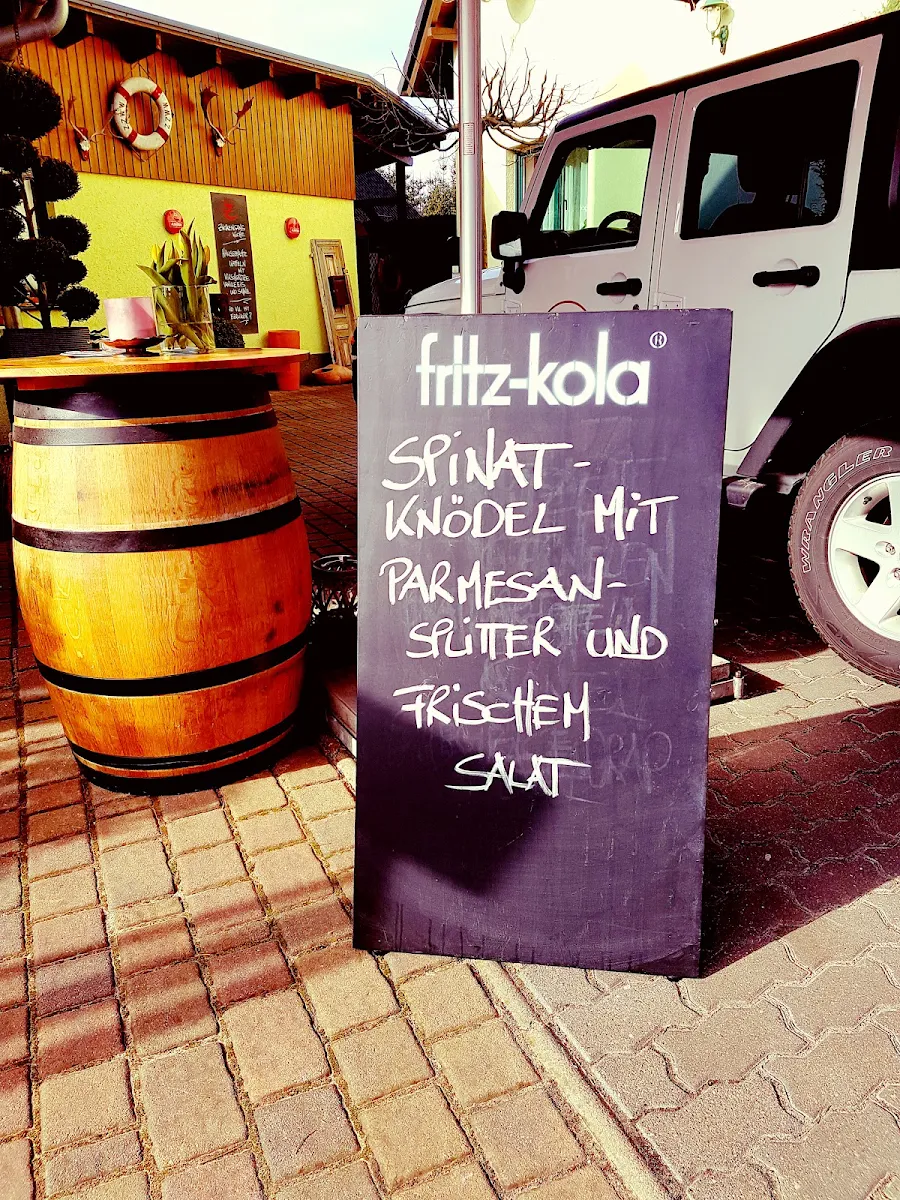 fritz-kola®
SPINAT-
KNÖDEL MIT
PARMESAN-
SPLITTER UND
FRISCHEM
SALAT
WRANGLER